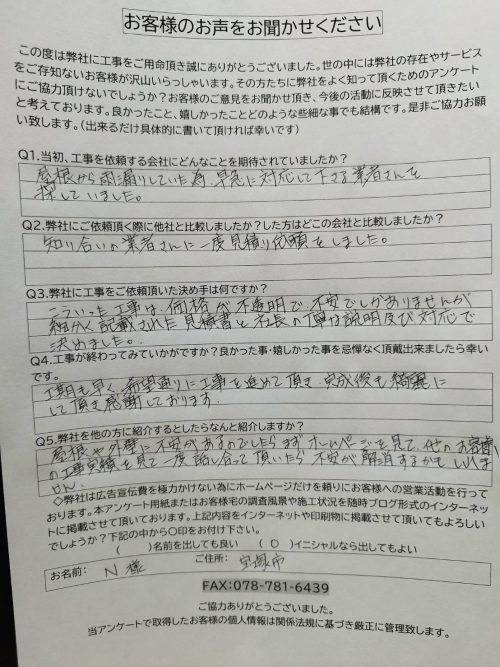 お客様のお声をお聞かせください
この度は弊社に工事をご用命頂き誠にありがとうございました。世の中には弊社の存在やサービス
をご存知ないお客様が沢山いらっしゃいます。その方たちに弊社をよく知って頂くためのアンケート
にご協力頂けないでしょうか？お客様のご意見をお聞かせ頂き、今後の活動に反映させて頂きたい
と考えております。良かったこと、嬉しかったことどのような些細な事でも結構です。是非ご協力お願
い致します。（出来るだけ具体的に書いて頂ければ幸いです）
Q1.当初、工事を依頼する会社にどんなことを期待されていましたか？
屋根から雨漏りしていた為、早急に対応して下さる業者さんを
探していました。
Q2.弊社にご依頼頂く際に他社と比較しましたか？した方はどこの会社と比較しましたか？
知り合いの業者さんに一度見積り依頼をしました。
Q3.弊社に工事をご依頼頂いた決め手は何ですか？
こういった工事は、価格が不透明で、不安でしかありませんが
細かく記載された見積書と社長の丁寧な説明及び対応で
決めました。
Q4.工事が終わってみていかがですか？良かった事・嬉しかった事を忌憚なく頂戴出来ましたら幸い
です。
工期も早く、希望通りに工事を進めて頂き、完成後も綺麗に
して頂き感謝しております。
Q5.弊社を他の方に紹介するとしたらなんと紹介しますか？
屋根や外壁に不安があるのでしたらまずホームページを見て、他のお客様
の工事実績を見て一度話し合って頂いたら不安が解消するかもしれま
せん。
◇弊社は広告宣伝費を極力かけない為にホームページだけを頼りにお客様への営業活動を行って
おります。本アンケート用紙またはお客様宅の調査風景や施工状況を随時ブログ形式のインターネッ
トに掲載させて頂いております。上記内容をインターネットや印刷物に掲載させて頂いてもよろしい
でしょうか？下記の中から〇印をお付け下さい。
（　　）名前を出しても良い　（ 〇 ）イニシャルなら出してもよい
お名前： N 様　ご住所： 宝塚市
FAX：078-781-6439
ご協力ありがとうございました。
当アンケートで取得したお客様の個人情報は関係法規に基づき厳正に管理致します。